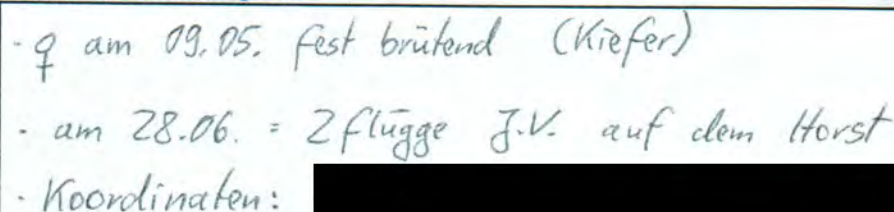 - ♀ am 09.05. fest brütend (Kiefer)
- am 28.06. = 2 flügge J.V. auf dem Horst
- Koordinaten: